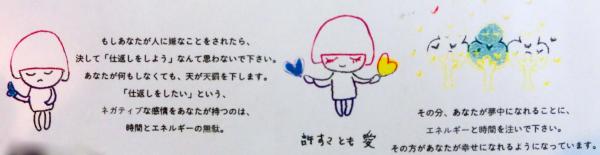 もしあなたが人に嫌なことをされたら、
決して「仕返しをしよう」なんて思わないで下さい。
あなたが何もしなくても、天が天罰を下します。
「仕返しをしたい」という、
ネガティブな感情をあなたが持つのは、
時間とエネルギーの無駄。
許すことも愛
その分、あなたが夢中になれることに、
エネルギーと時間を注いで下さい。
その方があなたが幸せになれるようになっています。